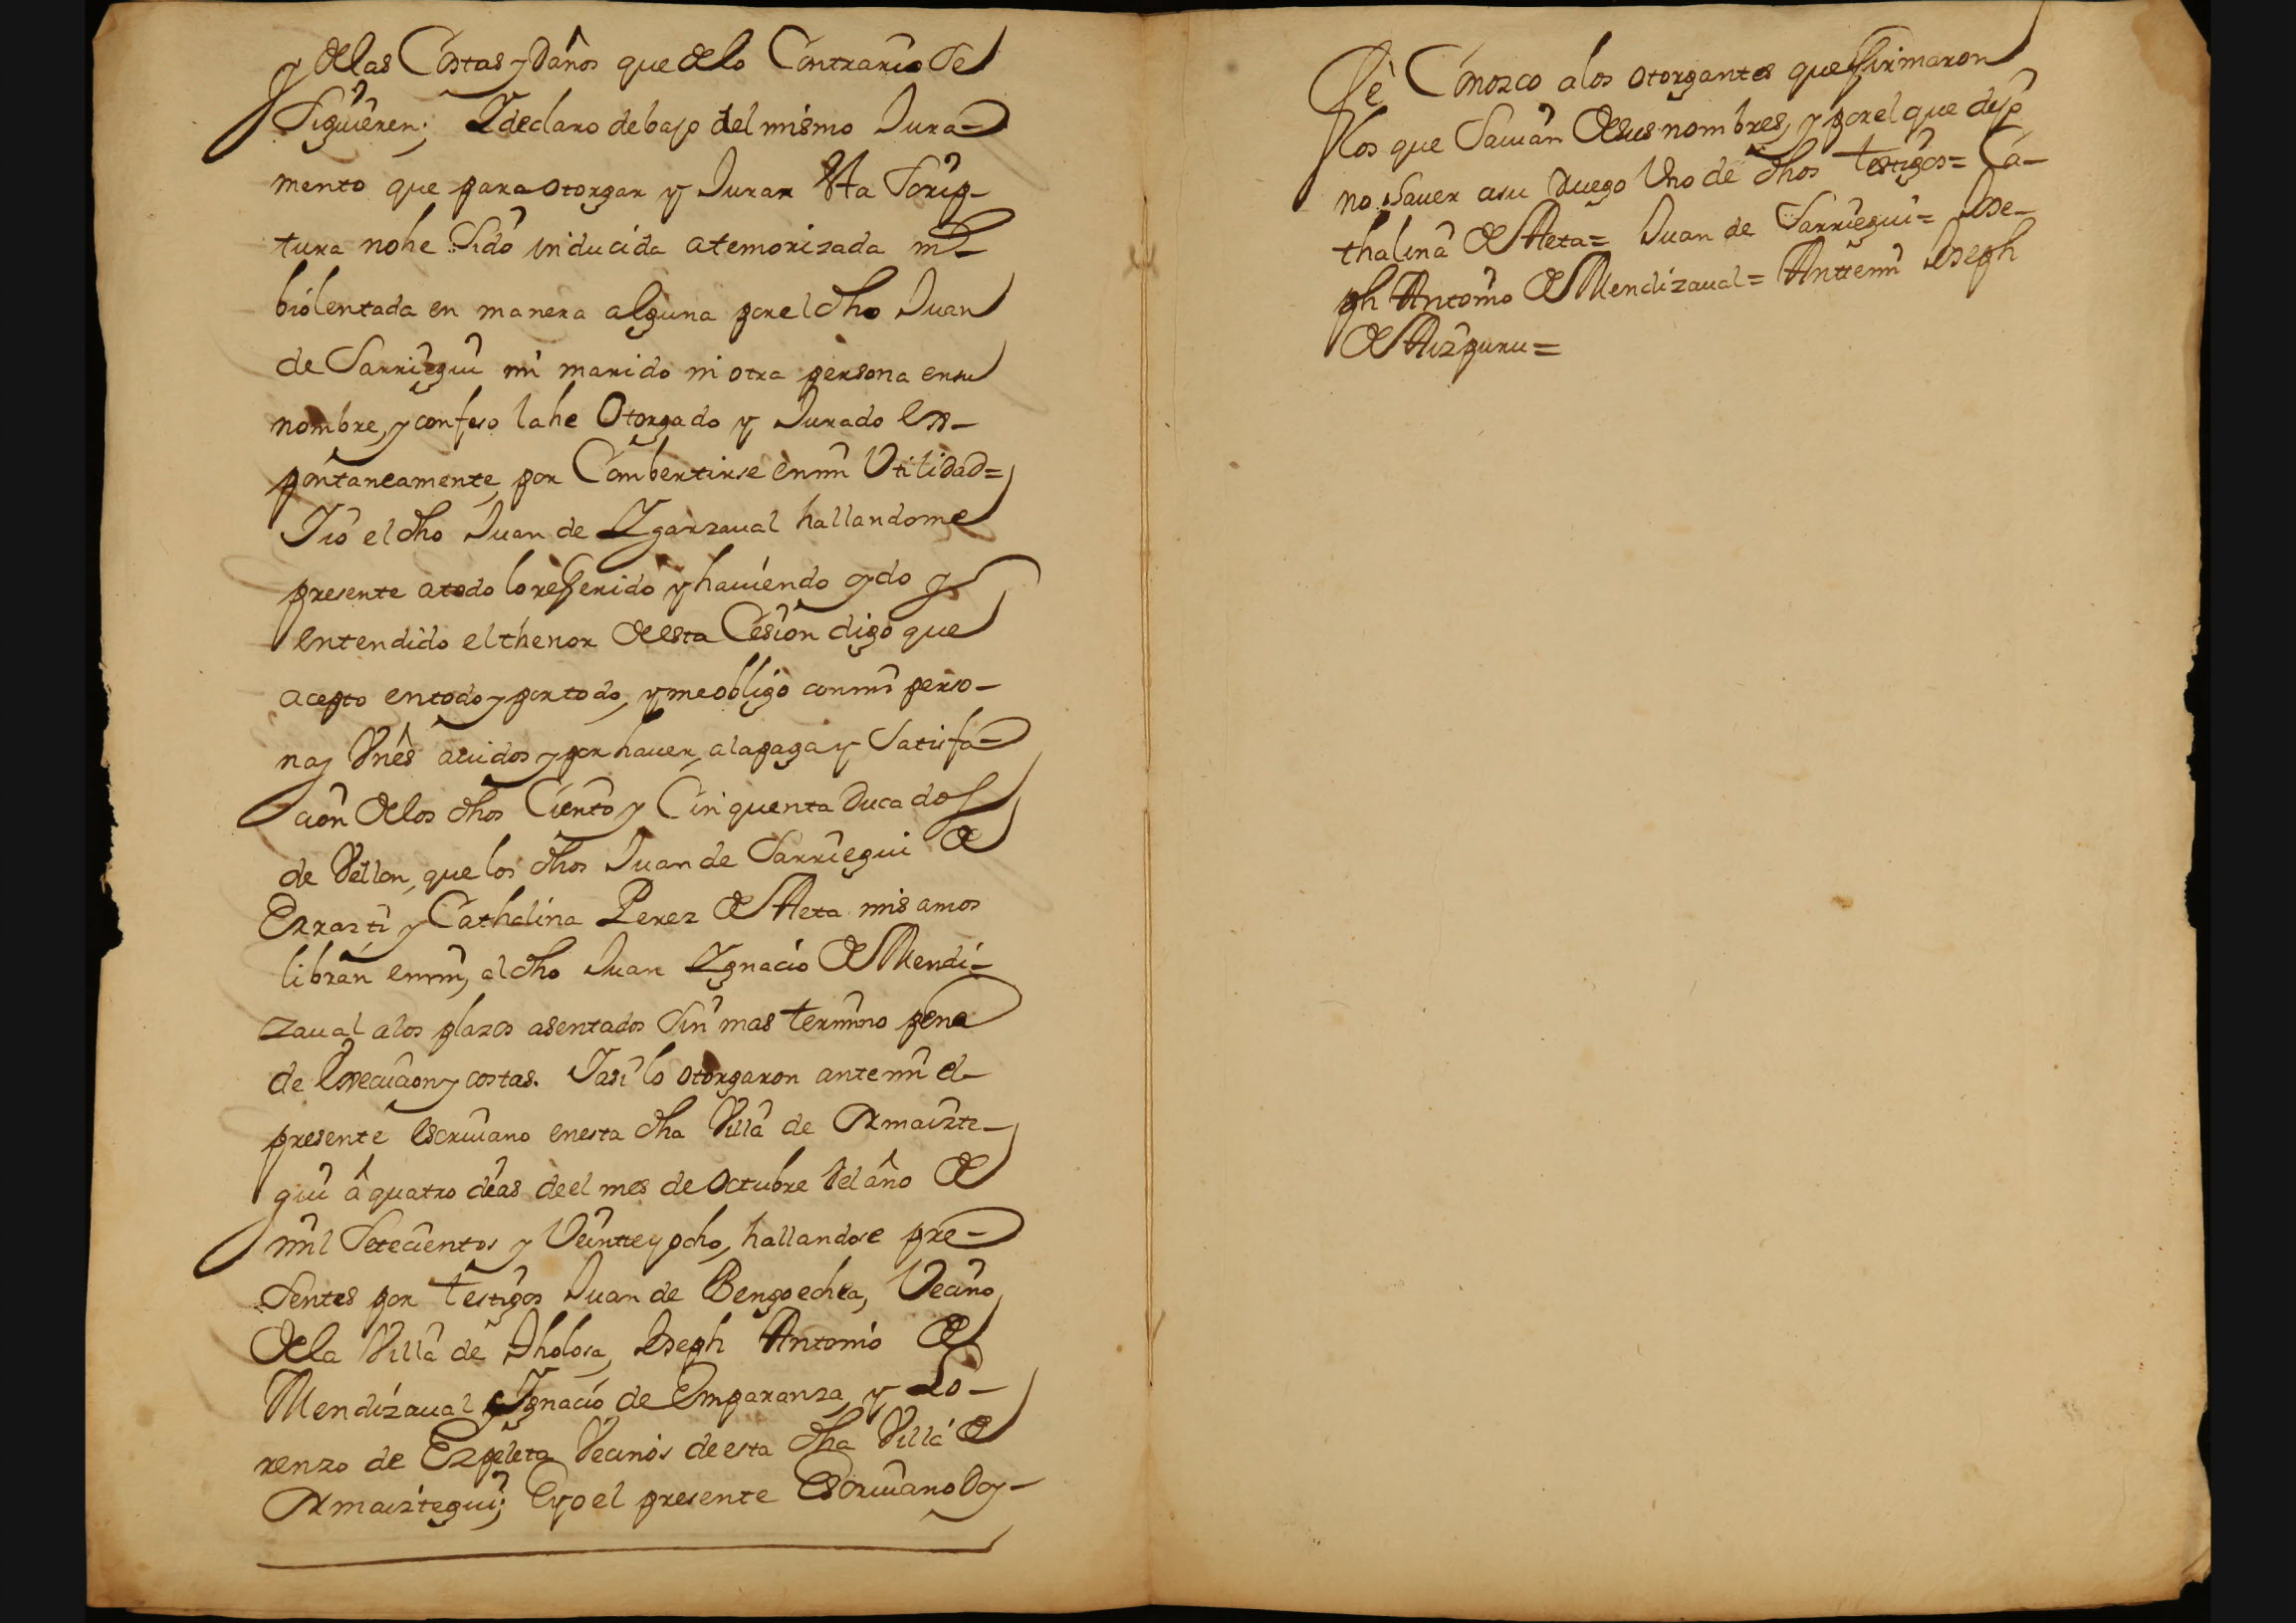 y de las Costas y daños que de lo Contrario se
siguieren; Y declaro debajo del mismo Jura-
mento que para otorgar y Jurar esta Scrip-
tura no he sido inducida atemorizada ni
biolentada en manera alguna por el dho Juan
de Sarriegui mi marido ni otra persona en su
nombre, y confeso la he Otorgado y Jurado es-
pontaneamente, por Combertirse en mi Utilidad=
Yio el dho Juan de Ygarzaual hallandome
presente a todo lo refferido y hauiendo oydo y
entendido el thenor de esta Cesion digo que
acepto en todo y por todo, y me obligo con mi perso-
na y Vnes auidos y por hauer, a la paga y Satisfa-
cion de los dhos Ciento y Cinquenta Ducados
de Vellon, que los dhos Juan de Sarriegui de
Errazti y Cathalina Perez de Aeta mis amos
libran en mi, al dho Juan Ygnacio de Mendi-
zaual a los plazos asentados Sin mas termino pena
de Execucion y costas. Y asi lo otorgaron ante mi el
presente escriuano en esta dha Villa de Ormaizte-
gui â quatro dias de el mes de Octubre del año de
mil Setecientos y Veintte y ocho, hallandose pre-
sentes por testigos Juan de Bengoechea, Vecino
de la Villa de Tholosa, Joseph Antonio de
Mendizaual Ygnacio de Emparanza, y Lo-
renzo de Ezpeleta Vecinos de esta dha Villa de
Ormaiztegui; E yo el presente Escriuano Doy
feè Conozco a los otorgantes que firmaron
los que Sauian de sus nombres, y por el que dijo
no sauer a su Ruego Uno de dhos testigos= Ca-
thalina de Aeta= Juan de Sarriegui= Jose-
ph Antonio de Mendizaual= Antemi Joseph
de Aizpuru=